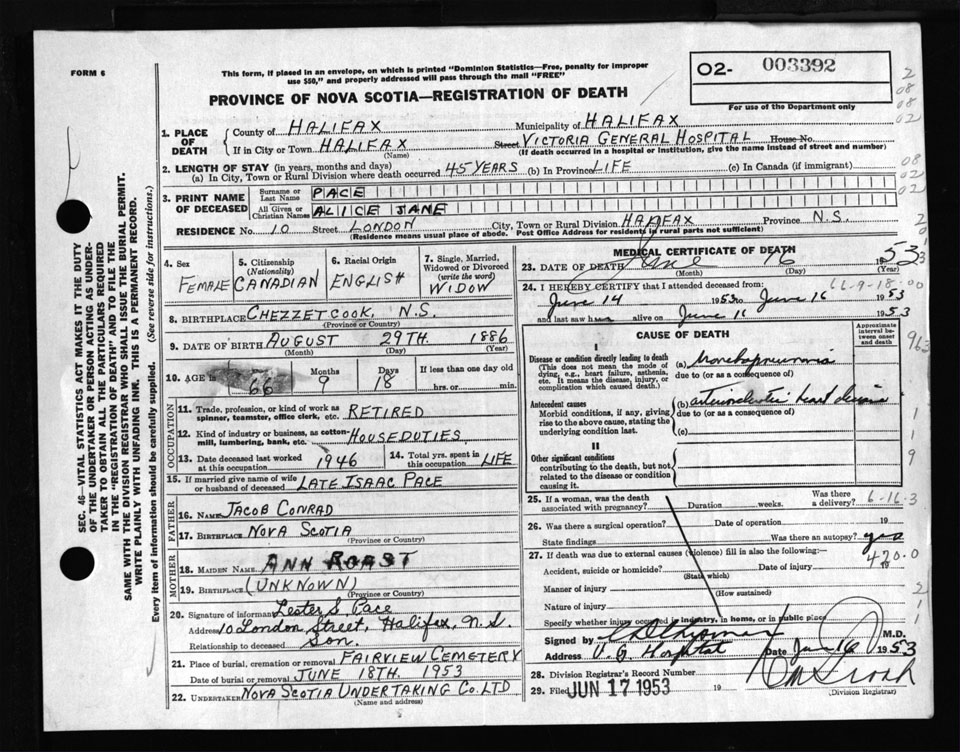 FORM 6
This form, if placed in an envelope, on which is printed "Dominion Statistics—Free, penalty for improper
use $50," and properly addressed will pass through the mail "FREE"
O2- 003392
For use of the Department only
PROVINCE OF NOVA SCOTIA—REGISTRATION OF DEATH
2
08
08
02
1. PLACE OF DEATH
County of HALIFAX Municipality of HALIFAX
If in City or Town HALIFAX Street VICTORIA GENERAL HOSPITAL House No.
(Name) (If death occurred in a hospital or institution, give the name instead of street and number)
2. LENGTH OF STAY (in years, months and days)
(a) In City, Town or Rural Division where death occurred 45 YEARS (b) In Province LIFE (c) In Canada (if immigrant)
08
02
02
3. PRINT NAME OF DECEASED
Surname or Last Name PACE
All Given or Christian Names ALICE JANE
RESIDENCE No. 10 Street LONDON City, Town or Rural Division HALIFAX Province N.S.
(Residence means usual place of abode. Post Office Address for residents in rural parts not sufficient)
4. Sex FEMALE
5. Citizenship (Nationality) CANADIAN
6. Racial Origin ENGLISH
7. Single, Married, Widowed or Divorced (write the word) WIDOW
8. BIRTHPLACE CHEZZETCOOK, N.S.
(Province or Country)
9. DATE OF BIRTH AUGUST 29TH. 1886
(Month) (Day) (Year)
10. AGE 66 Months 9 Days 18 If less than one day
hrs. or min.
OCCUPATION
11. Trade, profession, or kind of work as spinner, teamster, office clerk, etc. RETIRED
12. Kind of industry or business, as cotton-mill, lumbering, bank, etc. HOUSEDUTIES.
13. Date deceased last worked at this occupation 1946 14. Total yrs. spent in this occupation LIFE
15. If married give name of wife or husband of deceased LATE ISAAC PACE
FATHER
16. Name JACOB CONRAD
17. Birthplace NOVA SCOTIA
(Province or Country)
MOTHER
18. MAIDEN NAME ANN ROAST
19. BIRTHPLACE (UNKNOWN)
(Province or Country)
20. Signature of informant Lester S. Pace
Address 10 London Street, Halifax, N.S.
Relationship to deceased Son.
21. Place of burial, cremation or removal FAIRVIEW CEMETERY
Date of burial or removal JUNE 18TH. 1953
22. UNDERTAKER NOVA SCOTIA UNDERTAKING CO. LTD
(Name and address)
MEDICAL CERTIFICATE OF DEATH
23. DATE OF DEATH June 16 1953
(Month) (Day) (Year)
66-9-18-00
24. I HEREBY CERTIFY that I attended deceased from:
June 14 1953 to June 16 1953
and last saw h alive on June 16 1953
CAUSE OF DEATH
Approximate interval between onset and death
I
Disease or condition directly leading to death
(This does not mean the mode of dying, e.g., heart failure, asthenia, etc. It means the disease, injury, or complication which caused death.)
(a) Bronchopneumonia
due to (or as a consequence of)
Antecedent causes
Morbid conditions, if any, giving rise to the above cause, stating the underlying condition last.
(b) arteriosclerotic heart disease
due to (or as a consequence of)
(c)
II
Other significant conditions
contributing to the death, but not related to the disease or condition causing it.
963
25. If a woman, was the death associated with pregnancy? Duration weeks. Was there a delivery?
6-16-3
26. Was there a surgical operation? Date of operation 19
State findings Was there an autopsy? yes
27. If death was due to external causes (violence) fill in also the following:
420.0
Accident, suicide or homicide? Date of injury 19
(State which)
Manner of injury
(How sustained)
Nature of injury
Specify whether injury occurred in industry, in home, or in public place
Signed by M.D.
Address V. G. Hospital Date June 16 1953
28. Division Registrar's Record Number
29. Filed JUN 17 1953 19
(Division Registrar)
SEC. 46—VITAL STATISTICS ACT MAKES IT THE DUTY
OF THE UNDERTAKER OR PERSON ACTING AS UNDER-
TAKER TO OBTAIN ALL THE PARTICULARS REQUIRED
IN THE "REGISTRATION OF DEATH" AND TO FILE THE
SAME WITH THE DIVISION REGISTRAR WHO SHALL ISSUE THE BURIAL PERMIT.
WRITE PLAINLY WITH UNFADING INK. THIS IS A PERMANENT RECORD.
Every item of information should be carefully supplied. (See reverse side for instructions.)